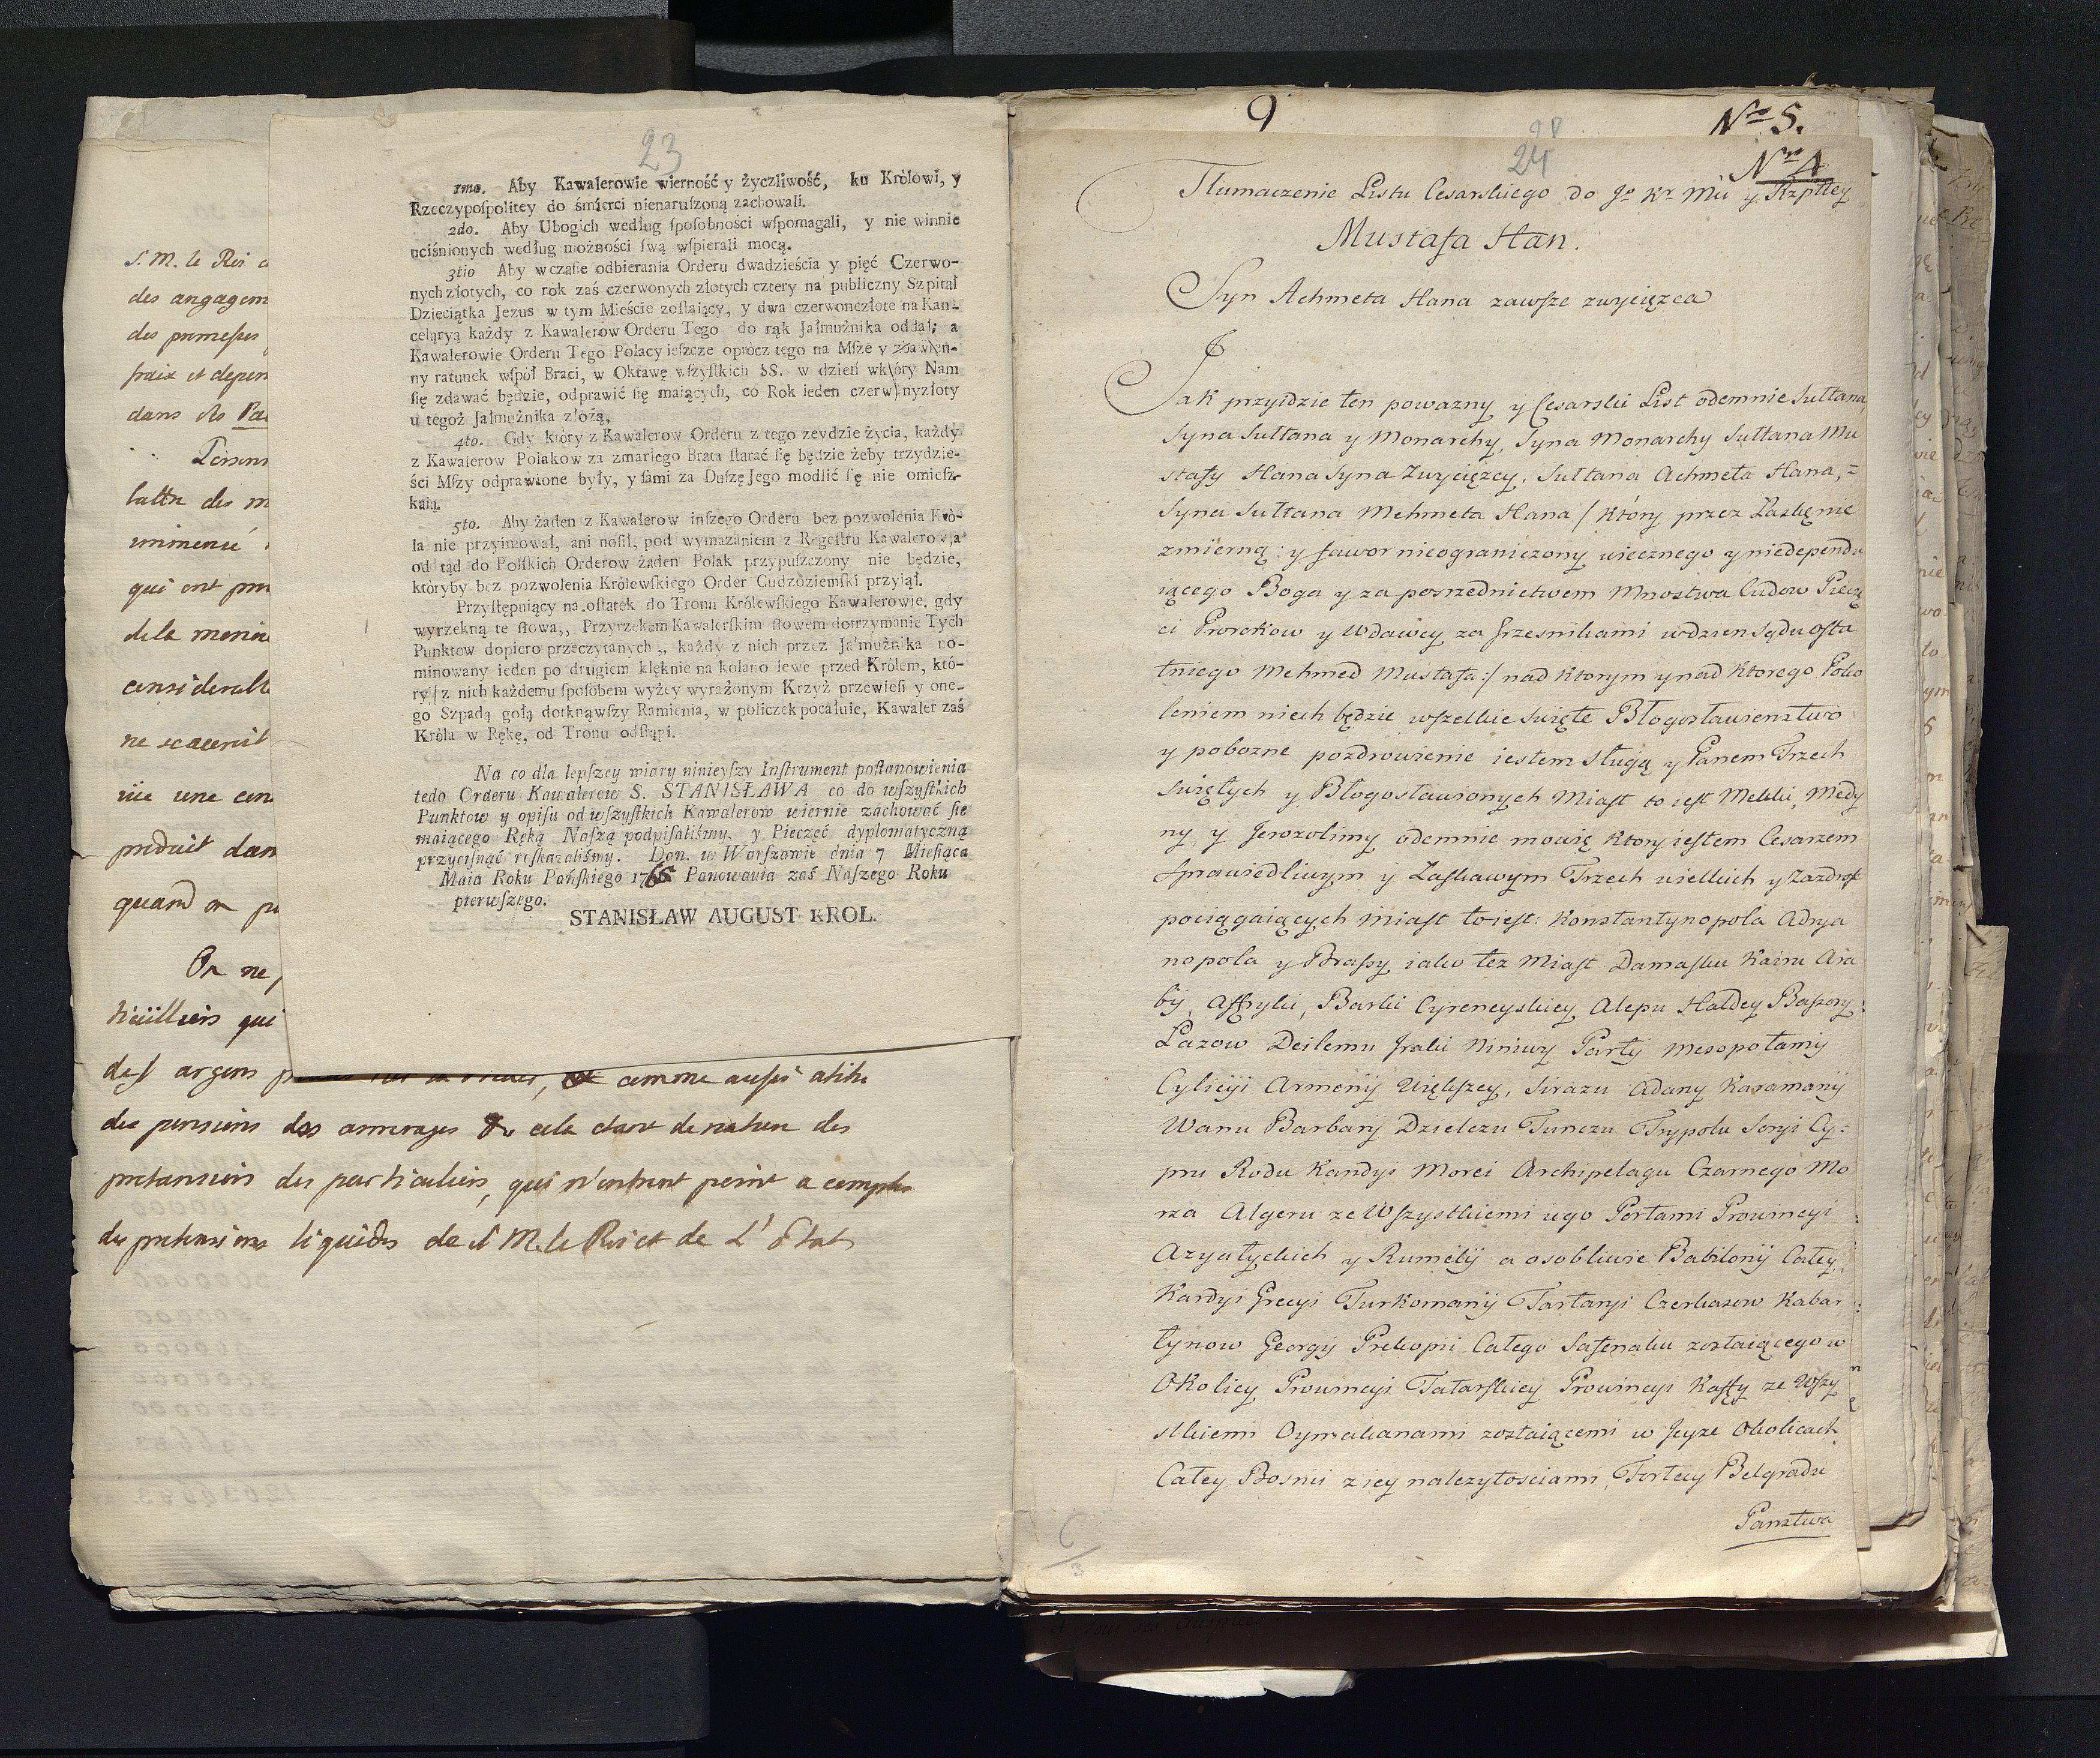 23
1mo. Aby Kawalerowie wierność y życzliwość, ku Królowi, y
Rzeczypoſpolitey do śmierci nienaruſzoną zachowali.
2do. Aby Ubogich według ſpoſobności wſpomagali, y nie winnie
uciśnionych według możności ſwą wſpierali mocą.
3tio Aby wczaſie odbierania Orderu dwadzieścia y pięć Czerwo-
nych złotych, co rok zaś czerwonych złotych cztery na publiczny Szpital
Dzieciątka Jezus w tym Mieście zoſtaiący, y dwa czerwonezłote na Kan-
celąryą każdy z Kawalerow Orderu Tego do rąk Jałmużnika oddał; a
Kawalerowie Orderu Tego Polacy ieſzcze oprócz tego na Mſze y zbawien-
ny ratunek wſpół Braci, w Oktawę wſzyſtkich SS. w dzień wktóry Nam
ſię zdawać będzie, odprawić ſię maiących, co Rok ieden czerwonyzłoty
u tegoż Jałmużnika złożą,
4to. Gdy który z Kawalerow Orderu z tego zeydzie życia, każdy
z Kawalerow Polakow za zmarłego Brata ſtarać ſię będzie żeby trzydzie-
ści Mſzy odprawione były, y ſami za Duſzę Jego modlić ſę nie omieſz-
kaią.
5to. Aby żaden z Kawalerow inſzego Orderu bez pozwolenia Kró-
la nie przyimował, ani noſił, pod wymazaniem z Regeſtru Kawalerow, a
od tąd do Polſkich Orderow żaden Polak przypuſzczony nie będzie,
któryby bez pozwolenia Królewſkiego Order Cudzoziemſki przyiął.
Przyſtępuiący na oſtatek do Tronu Królewſkiego Kawalerowie, gdy
wyrzekną te ſłowa,, Przyrzekam Kawalerſkim ſłowem dotrzymanie Tych
Punktow dopiero przeczytanych,, każdy z nich przez Jałmużnika no-
minowany ieden po drugiem klęknie na kolano lewe przed Królem, któ-
ry z nich każdemu ſpoſobem wyżey wyrażonym Krzyż przewieſi y one-
go Szpadą gołą dotknąwſzy Ramienia, w policzek pocałuie, Kawaler zaś
Króla w Rękę, od Tronu odſtąpi.
Na co dla lepſzey wiary ninieyſzy Inſtrument poſtanowienia
tedo Orderu Kawalerow S. STANISŁAWA co do wſzyſtkich
Punktow y opiſu od wſzyſtkich Kawalerow wiernie zachować ſie
maiącego Ręką Naſzą podpiſaliśmy, y Pieczęć dyplomatyczną
przyciſnąć roſkazaliśmy. Dan. w Warſzawie dnia 7 Mieſiąca
Maia Roku Pańſkiego 1765 Panowania zaś Naſzego Roku
pierwſzego.
STANISŁAW AUGUST KROL.
S. M. le Roi
des angagem
des promeſses
paix et depen
dans
lattre des m
imminent
qui ont
de la
considerable
ne
vie une
produit dan
quand on p
On ne
qui
des argens comme auſsi
des pensions des arrerages cela etant de nature des
pretensions des particuliers, qui n'entrent point a compte
des pretensions liquides de S M. le Roi et de L'Etat
9
28
24
Nro 5.
Nro 4
Tłumaczenie Listu Cesarskiego do Jo Kr Mci y Rzptey
Mustafa Han.
Syn Achmeta Hana zawſze zwycięzca
Jak przyidzie ten powazny y Cesarski List odemnie Sułtana,
Syna Sułtana y Monarchy, Syna Monarchy Sułtana Mu
stafy Hana Syna Zwycięzcy, Sułtana Achmeta Hana, =
Syna Sułtana Mehmeta Hana / który przez Łaskę nie
zmierną: y fawor nieograniczony wiecznego y niedependu
iącego Boga y za posrzednictwem Mnostwa Cudow Pieczę
ci Prorokow y Wdawcy za Grzesnikami wdzien Sądu Oſta
tniego Mehmed Mustafa:/ nad ktorym y nad ktorego Poko
leniem niech będzie wſzelkie swięte Błogosławienstwo
y pobozne pozdrowienie iestem Sługą y Panem Trzech
Swiętych y Błogosławionych Miaſt to ieſt Mekki, Medy
ny, y Jerozolimy odemnie mowię ktory ieſtem Cesarzem
Sprawiedliwym y Łaſkawym Trzech wielkich y Zazdroſć
pociągaiących Miaſt to ieſt: Konstantynopola Adrya
nopola y Braſsy, iako tez Miaſt Damaſku Kairu Ara
by, Affryki, Barki Cyreneyskiey, Alepu Haldey Baſsory
Lazow Deilemu Jraki Niniwy Partij Mesopotamij
Cylicyi Armenij więkſzey, Sirazu Adany Karamanij
Wanu Barbarij Dzielezu Tunezu Trypolu Soryi Cy=
pru Rodu Kandyi Morei Archipelagu Czarnego Mo
rza Algeru ze Wſzystkiemi iego Portami Prowincyi
Azyatyckich y Rumelij a osobliwie Babilonij Całey
Kardyi Grecyi Turkomanij Tartaryi Czerkasow Kabar
tynow Georgij Prekopii Całego zostaiącego w
Okolicy Prowincyi Tatarſkiey Prowincyi Kaffy ze Wſzy
stkiemi Oymakanami zostaiącemi w Jeyze Okolicach
Całey Bosnii z iey nalezytosciami, Fortecy Belgradu
Panstwa